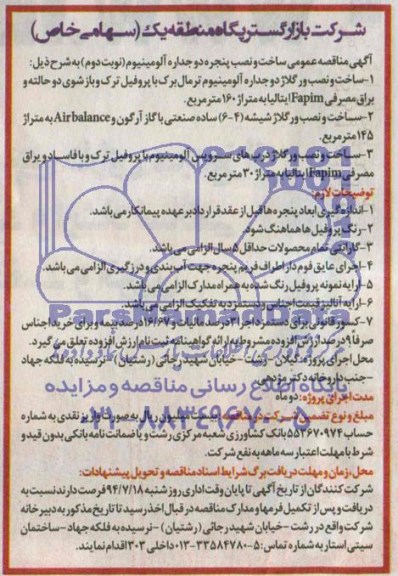 شرکت بازارگستر پگاه منطقه یک (سهامی خاص)
آگهی مناقصه عمومی ساخت و نصب پنجره دو جداره آلومینیوم (نوبت دوم) به شرح ذیل:
۱-ساخت و نصب ور گلاژ دو جداره آلومینیوم ترمال برک با پروفیل ترک و باز شوی دو حالته و
یراق مصرفی Fapim ایتالیا به متراژ ۱۶۰ متر مربع.
۲-ساخت و نصب ور گلاژ شیشه (۴-۶) ساده صنعتی با گاز آرگون و Airbalance به متراژ
۱۴۵ متر مربع.
۳-ساخت و نصب ور گلاژ درب های سرویس آلومینیوم با پروفیل ترک و با فاساد و یراق
مصرفی Fapim ایتالیا به متراژ ۳۰ متر مربع.
توضیحات لازم:
۱-اندازه گیری ابعاد پنجره ها قبل از عقد قرارداد بر عهده پیمانکار می باشد.
۲-رنگ پروفیل ها هماهنگ شود.
۳-گارانتی تمام محصولات حداقل ۵ سال الزامی می باشد.
۴-اجرای عایق فوم دار اطراف فریم پنجره جهت آب بندی و درزگیری الزامی می باشد.
۵-ارایه نمونه پروفیل رنگ شده به همراه مدارک الزامی می باشد.
۶-ارایه آنالیز قیمت اجناس و دستمزد به تفکیک الزامی می باشد.
۷-کسور قانونی برای دستمزد اجرا ۳ درصد مالیات و ۱۶/۶۷ درصد بیمه و برای خرید اجناس
صرفا ۹ درصد ارزش افزوده مشروط به ارائه گواهینامه ثبت نام ارزش افزوده تعلق می گیرد.
محل اجرای پروژه: گیلان - رشت - خیابان شهید رجائی (رشتیان) - نرسیده به فلکه جهاد
- جنب داروخانه دکتر مژدهی
مدت اجرای پروژه: دو ماه
مبلغ و نوع تضمین شرکت در مناقصه: میلیون ریال به صورت واریز نقدی به شماره
حساب ۵۵۲۶۷۰۹۷۴ بانک کشاورزی شعبه مرکزی رشت و یا ضمانت نامه بانکی بدون قید و
شرط با مهلت اعتبار سه ماهه به نفع شرکت.
محل، زمان و مهلت دریافت برگ شرایط اسناد مناقصه و تحویل پیشنهادات:
شرکت کنندگان از تاریخ آگهی تا پایان وقت اداری روز شنبه ۹۴/۷/۱۸ فرصت دارند نسبت به
دریافت و پس از تکمیل فرمها و مدارک مناقصه در قبال اخذ رسید تا تاریخ مذکور به دبیرخانه
شرکت واقع در رشت - خیابان شهید رجائی (رشتیان) - نرسیده به فلکه جهاد - ساختمان
سیتی استار به شماره تماس: ۵-۳۳۵۸۴۷۸۰-۰۱۳ داخلی ۳۰۳ اقدام نمایند.
ParsNamadData
پایگاه اطلاع رسانی مناقصه و مزایده
۰۲۱-۸۸۳۴۹۶۷۰-۵